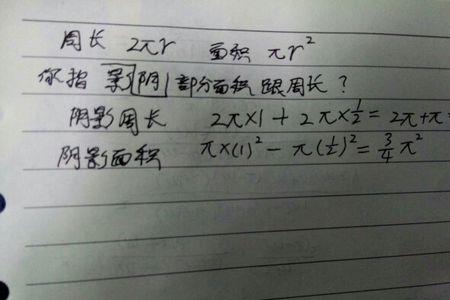 周长 2πr 面积 πr²
你指 影阴 部分面积跟周长？
阴影周长 2π×1 + 2π×½ = 2π+π=
阴影面积 π×(1)² − π(½)² = ¾π²